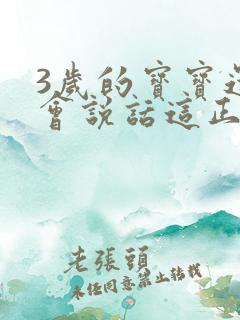 3歲的寶寶還
會説話這正
老張頭
未经同意禁止转载